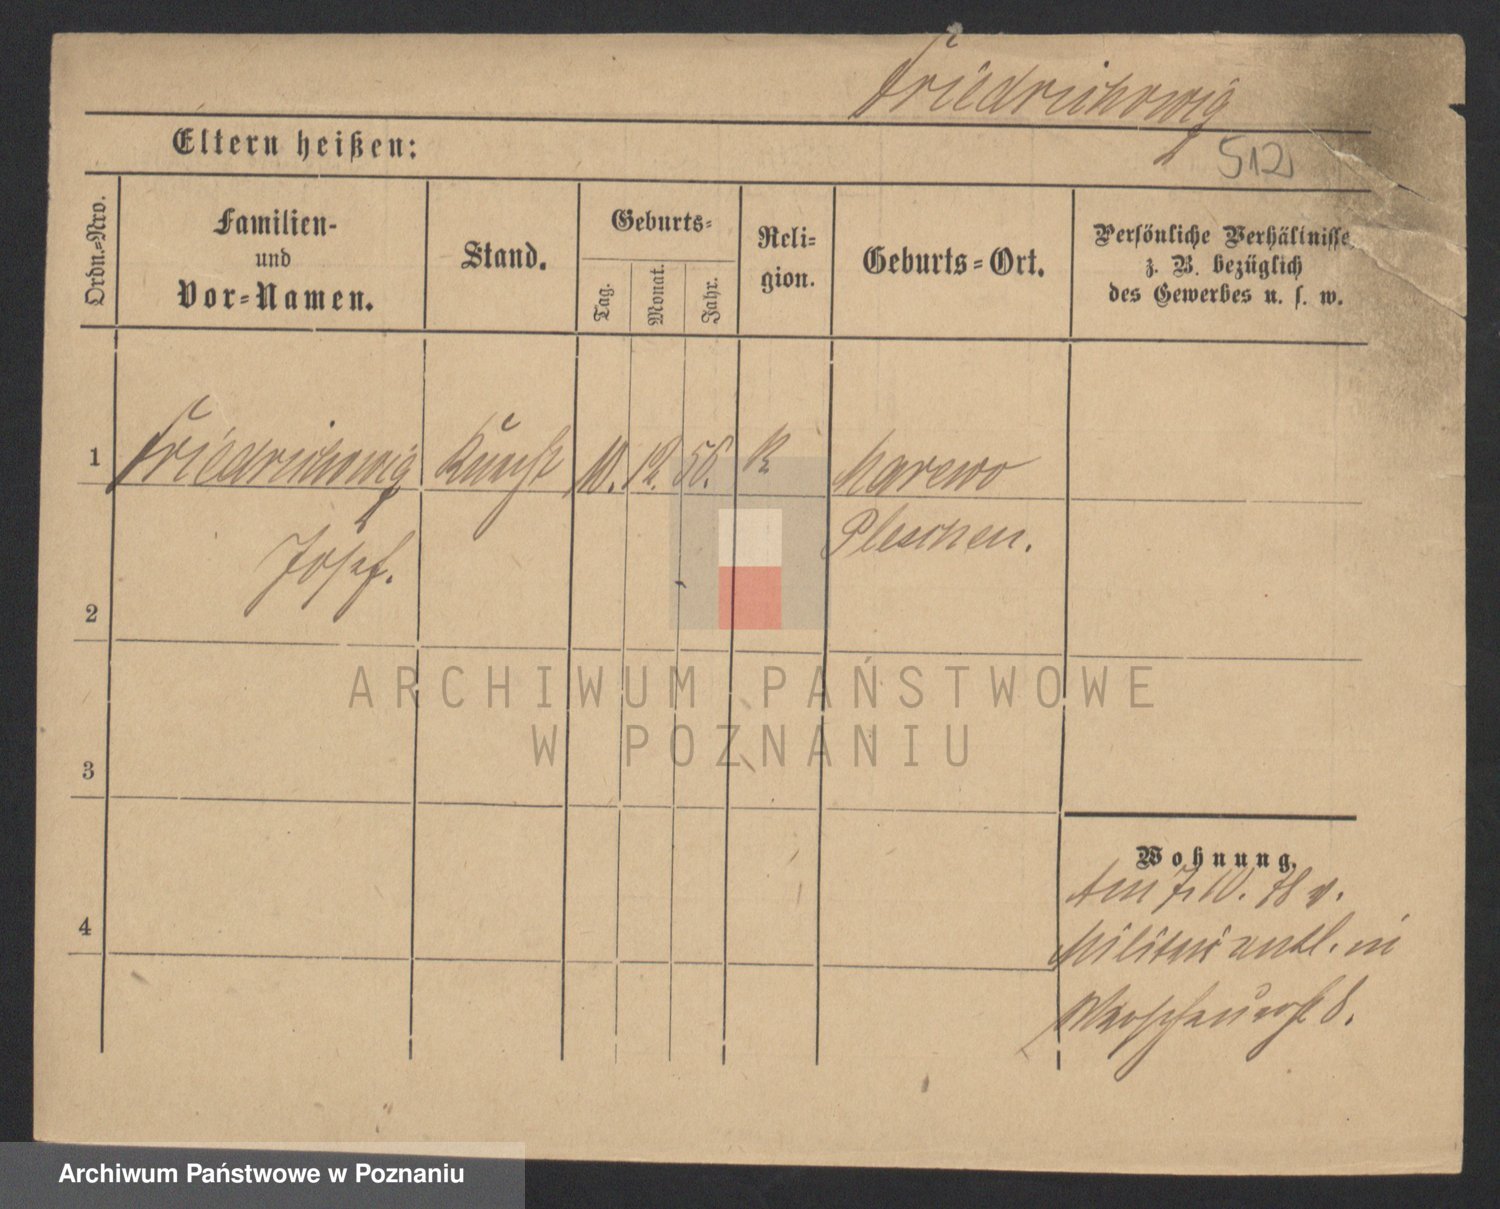 Friedrichowig
512
Eltern heißen:
Ordn.-Nro.
Familien-
und
Vor-Namen.
Stand.
Geburts-
Tag.
Monat.
Jahr.
Reli-
gion.
Geburts-Ort.
Persönliche Verhältnisse
z. B. bezüglich
des Gewerbes u. s. w.
1 Friedrichowig 10. 12. 56. K Marewo
Josef. Pleschen.
2
ARCHIWUM PAŃSTWOWE
W POZNANIU
3
Wohnung.
Am 7. 10. 78 v.
Militär entl. in
4
8.
Archiwum Państwowe w Poznaniu